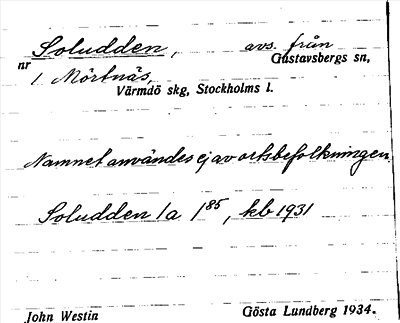 Soludden, avs. från
nr Gustavsbergs sn,
1. Mörtnäs,
Värmdö skg, Stockholms l.
Namnet användes ej av ortsbefolkningen.
Soludden 1a 1⁸⁵, kb 1931
John Westin Gösta Lundberg 1934.